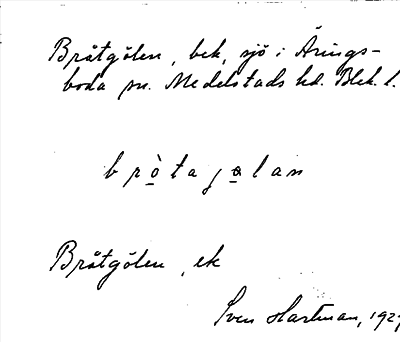 Bråtgölen, bek, sjö i Årings-
boda sn. Medelstads hd. Blek. l.
b r ò t a j ə l a n
Bråtgölen, ek
Sven Hartman, 1927